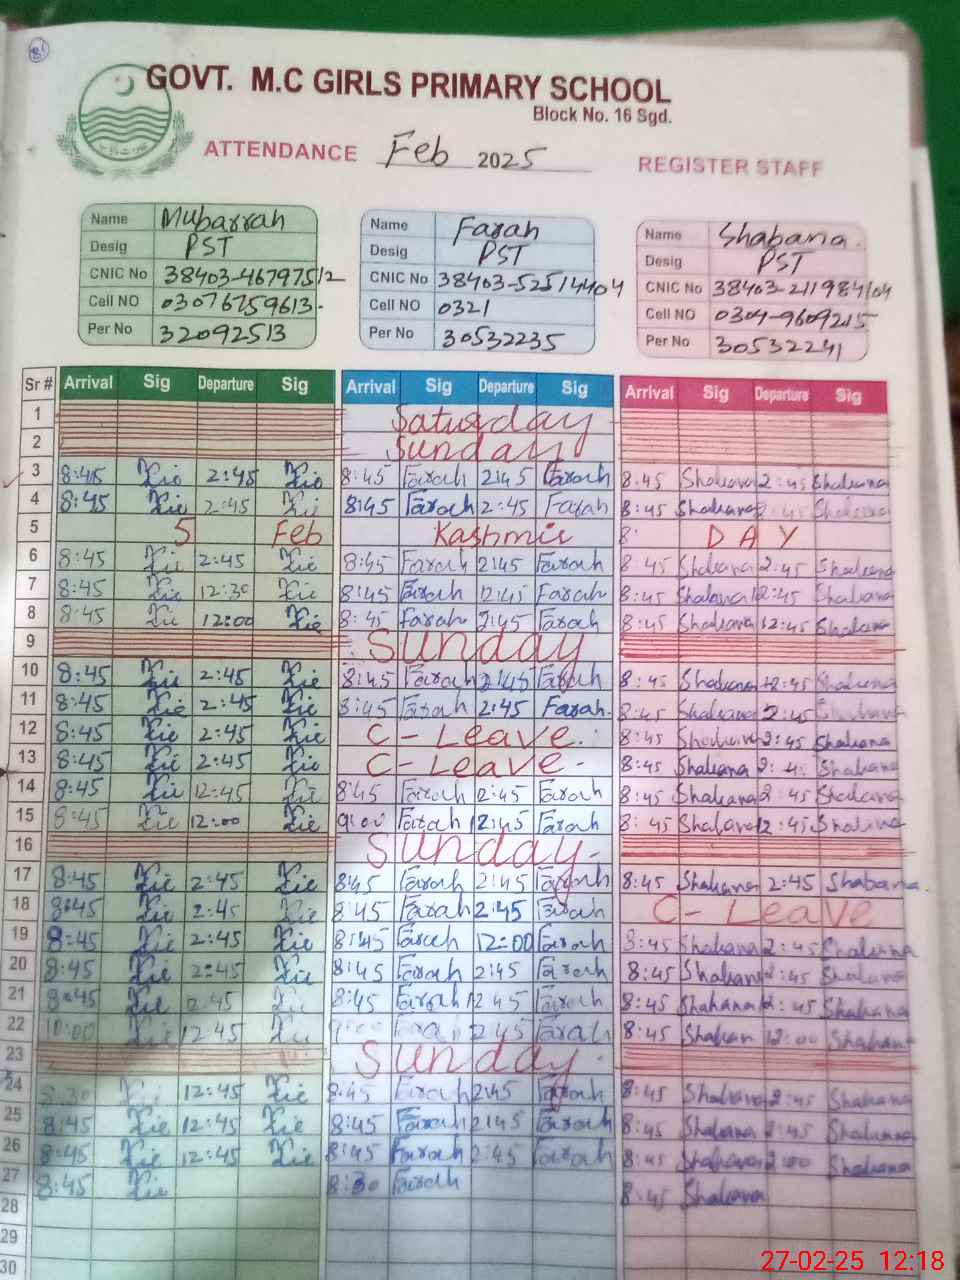 GOVT. M.C GIRLS PRIMARY SCHOOL
Block No. 16 Sgd.
ATTENDANCE Feb 2025 REGISTER STAFF
Name Mubarrah Name Farah Name Shabana.
Desig PST Desig PST Desig PST
CNIC No 38403-46797512 CNIC No 38403-52514404 CNIC No 38403-211984104
Cell NO 03076759613. Cell NO 0321 Cell NO 0304-9609215
Per No 32092513 Per No 30532235 Per No 30532241
Sr # Arrival Sig Departure Sig Arrival Sig Departure Sig Arrival Sig Departure Sig
1 Saturday
2 Sunday
3 8:45 2:45 8:45 Farah 2:45 Farah 8.45 Shabana 2:45 Shabana
4 8:45 2:45 8:45 Farah 2:45 Farah 8:45 Shabana 2:45 Shabana
5 5 Feb Kashmir 8: DAY
6 8:45 2:45 8:45 Farah 2:45 Farah 8:45 Shabana 2:45 Shabana
7 8:45 12:30 8:45 Farah 12:45 Farah 8:45 Shabana 2:45 Shabana
8 8:45 12:00 8:45 Farah 2:45 Farah 8:45 Shabana 12:45 Shabana
9 Sunday
10 8:45 2:45 8:45 Farah 2:45 Farah 8:45 Shabana 2:45 Shabana
11 8:45 2:45 8:45 Farah 2:45 Farah. 8:45 Shabana 2:45 Shabana
12 8:45 2:45 C-Leave. 8:45 Shabana 2:45 Shabana
13 8:45 2:45 C-Leave- 8:45 Shabana 2:45 Shabana
14 8:45 12:45 8:45 Farah 2:45 Farah 8:45 Shabana 2:45 Shabana
15 8:45 12:00 9:00 Farah 12:45 Farah 8:45 Shabana 12:45 Shabana
16 Sunday-
17 8:45 2:45 8:45 Farah 2:45 Farah 8:45 Shabana 2:45 Shabana.
18 8:45 2:45 8:45 Farah 2:45 Farah C-Leave
19 8:45 2:45 8:45 Farah 12:00 Farah 8:45 Shabana 2:45 Shabana
20 8:45 2:45 8:45 Farah 2:45 Farah 8:45 Shabana 2:45 Shabana
21 8:45 2:45 8:45 Farah 12 45 Farah 8:45 Shabana 12:45 Shabana
22 10:00 12:45 9:00 Farah 2:45 Farah 8:45 Shaban 12:00 Shabana
23 Sunday.
24 12:45 8:45 Farah 2:45 Farah 8:45 Shabana 2:45 Shabana
25 8:45 12:45 8:45 Farah 2:45 Farah 8:45 Shabana 2:45 Shabana
26 8:45 12:45 8:45 Farah 2:45 Farah 8:45 Shabana 2:00 Shabana
27 8:45 8:30 Farah 8:45 Shabana
28
29
30
27-02-25 12:18